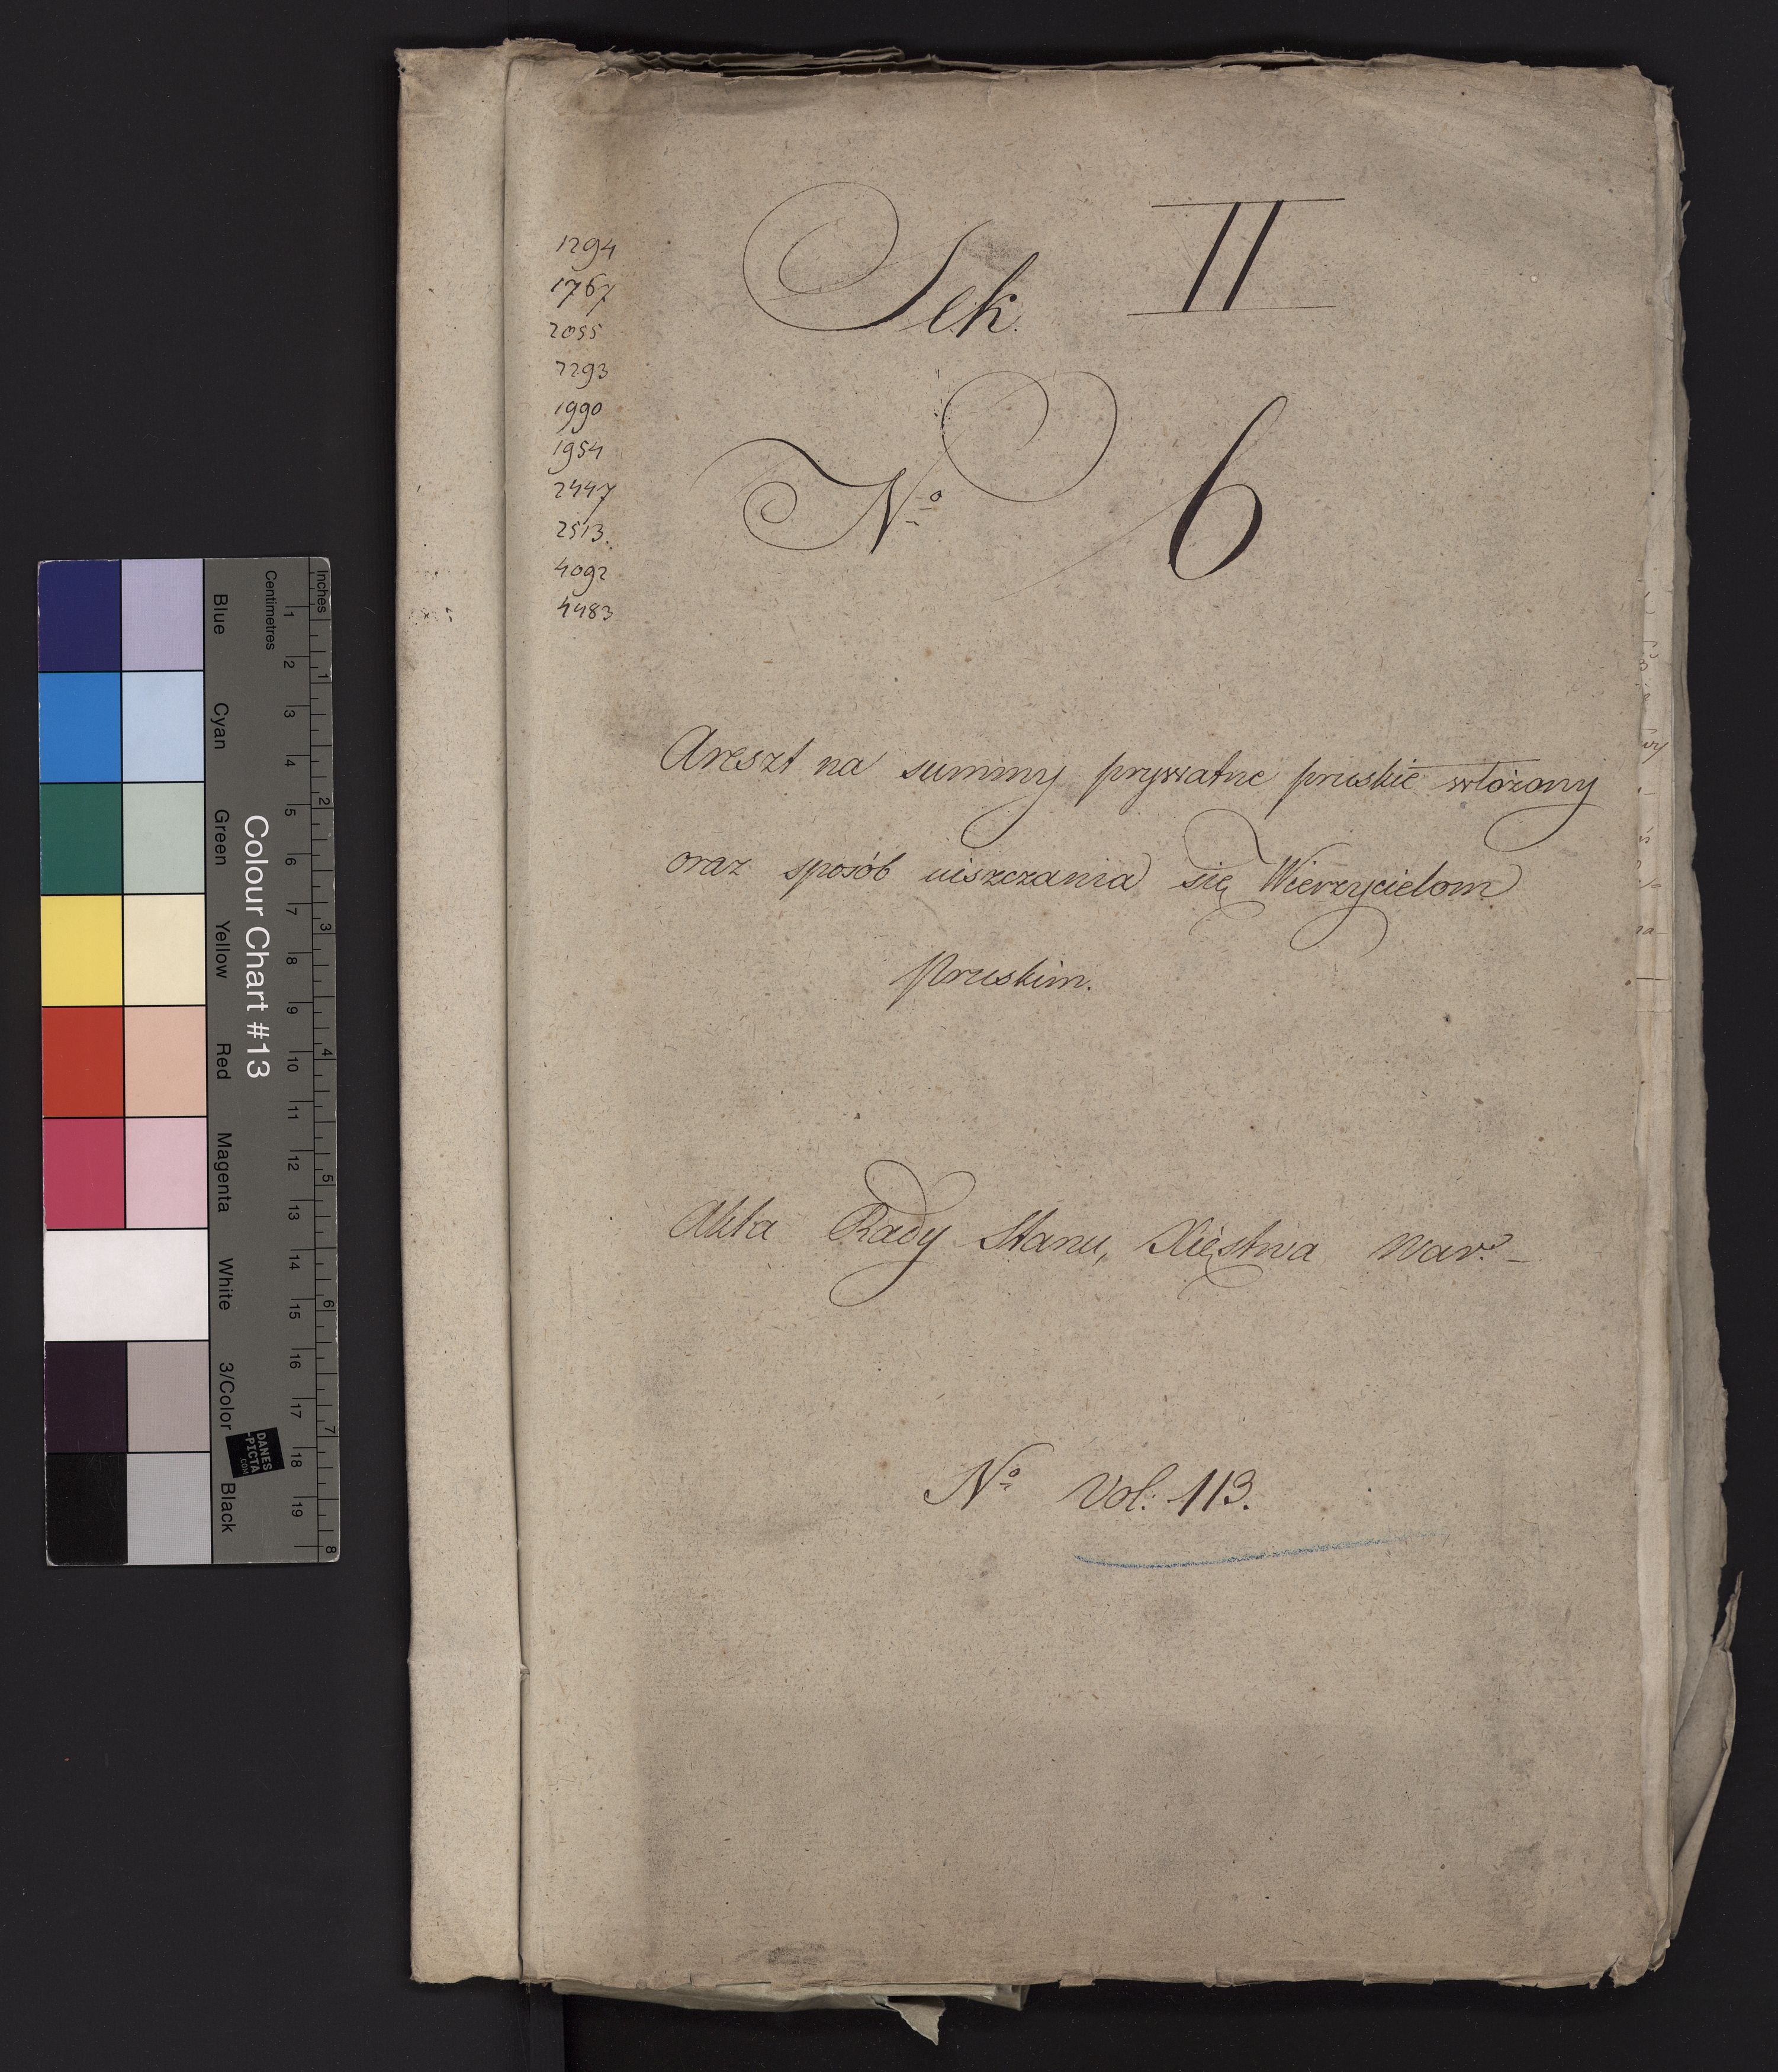 1294
1767
2055
2293
1990
1954
2447
2513.
4092
4483
Sek. II
Nº 6
Areszt na summy prywatne pruskie włożony
oraz sposób uiszczania się Wierzycielom
Pruskim.
Akta Rady Stanu, Xięstwa War.
Nº Vol: 113.
Colour Chart #13
Blue
Cyan
Green
Yellow
Red
Magenta
White
3/Color
Black
Centimetres
1 2 3 4 5 6 7 8 9 10 11 12 13 14 15 16 17 18 19
Inches
1 2 3 4 5 6 7 8
DANES
-PICTA
.COM